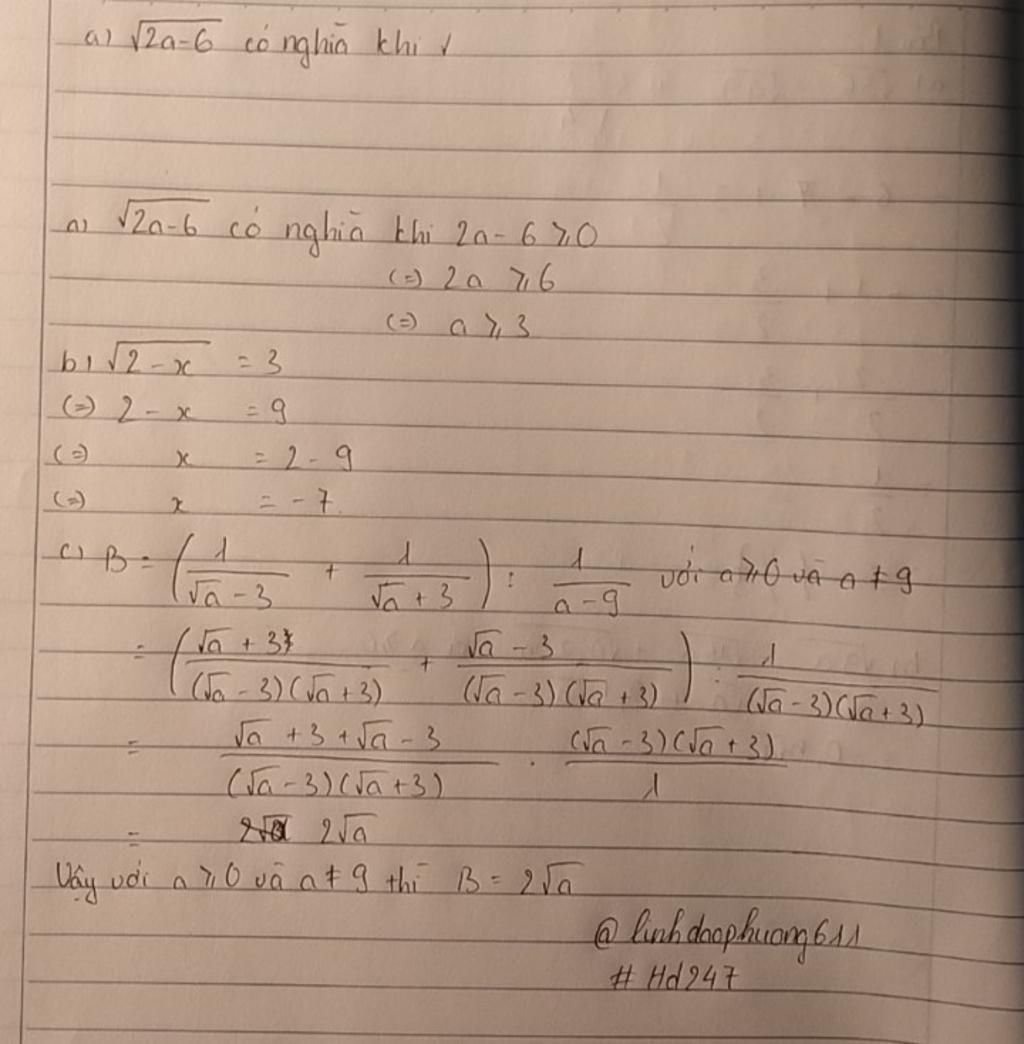 a) √2a-6 có nghĩa khi
a) √2a-6 có nghĩa khi 2a - 6 ≥ 0
(=) 2a ≥ 6
(=) a ≥ 3
b) √2-x = 3
(=) 2 - x = 9
(=) x = 2 - 9
(=) x = -7
c) B = (1/(√a - 3) + 1/(√a + 3)) : 1/(a - 9) với a ≥ 0 và a ≠ 9
= ((√a + 3)/((√a - 3)(√a + 3)) + (√a - 3)/((√a - 3)(√a + 3))) : 1/((√a - 3)(√a + 3))
= (√a + 3 + √a - 3)/((√a - 3)(√a + 3)) . ((√a - 3)(√a + 3))/1
= 2√a
Vậy với a ≥ 0 và a ≠ 9 thì B = 2√a
@linhdaophuong611
#Hd247